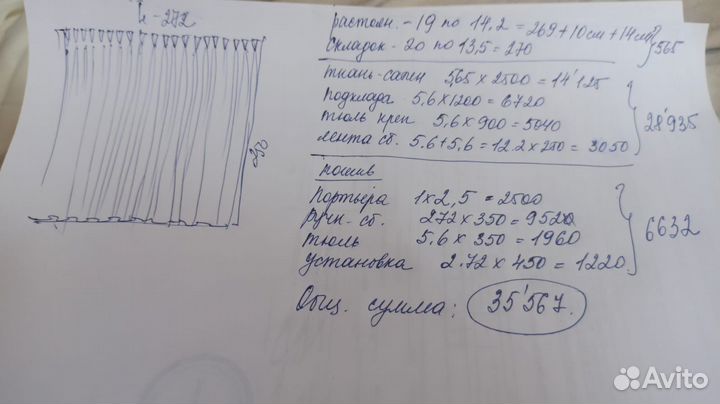 h - 272
250
растоян. - 19 по 14,2 = 269 + 10см + 14см
складок - 20 по 13,5 = 270
565
ткань-сатен 5,65 x 2500 = 14'125
подклада 5,6 x 1200 = 6720
тюль креп 5,6 x 900 = 5040
лента сб. 5.6 + 5,6 = 12.2 x 250 = 3050
28'935
пошив
портьера 1 x 2,5 = 2500
ручн. сб. 272 x 350 = 9520
тюль 5.6 x 350 = 1960
установка 2.72 x 450 = 1220
6632
Общ. сумма: 35'567.
Avito